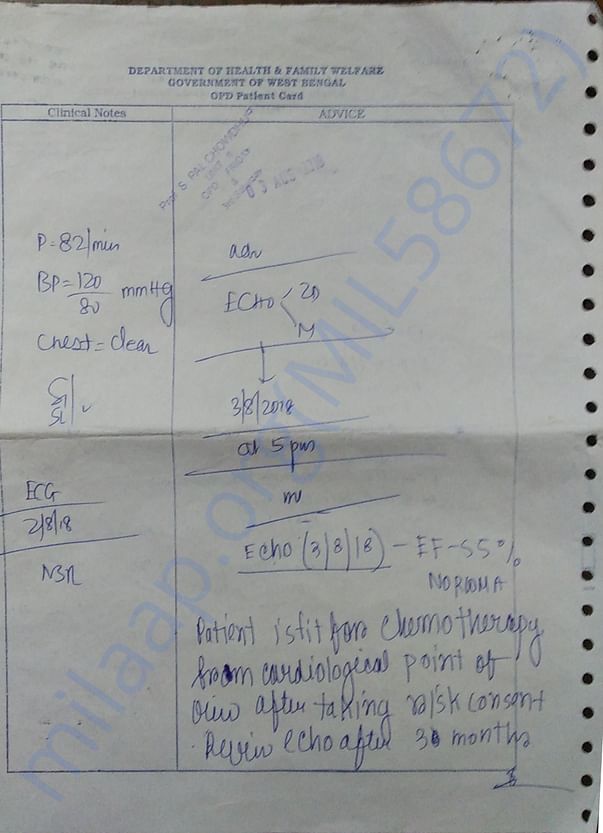 DEPARTMENT OF HEALTH & FAMILY WELFARE
GOVERNMENT OF WEST BENGAL
OPD Patient Card
Clinical Notes
ADVICE
Prof. S. PAL CHOWDHURY
UNIT
OPD FRIDAY
&
P=82/min
BP=120/80 mmHg
Chest=clear
S1
S2
ECG
2/8/18
NSR
adv
ECHO 2D
M
3/8/2018
at 5 pm
Echo (3/8/18) - EF-55%
NO RWMA
Patient is fit for chemotherapy
from cardiological point of
view after taking risk consent
Review echo after 3 months
milaap.org(MIL58672)